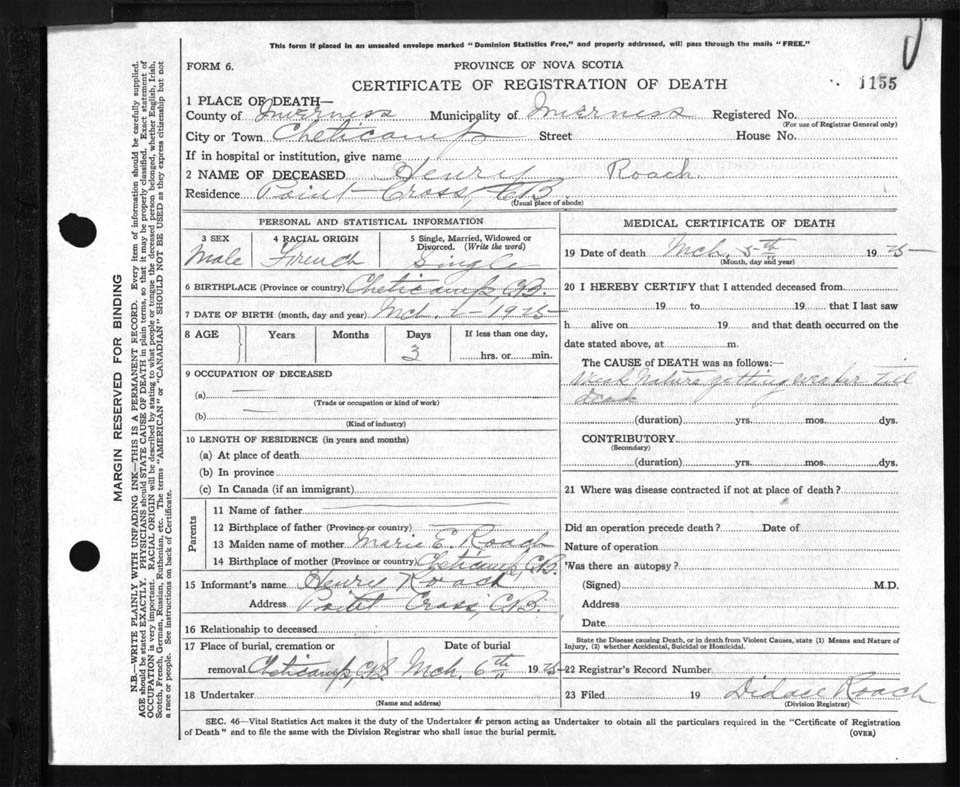 This form if placed in an unsealed envelope marked "Dominion Statistics Free," and properly addressed, will pass through the mails "FREE."
FORM 6.
PROVINCE OF NOVA SCOTIA
CERTIFICATE OF REGISTRATION OF DEATH
1155
1 PLACE OF DEATH—
County of Inverness Municipality of Inverness Registered No.
(For use of Registrar General only)
City or Town Cheticamp Street House No.
If in hospital or institution, give name
2 NAME OF DECEASED Henry Roach
Residence Point Cross, C.B.
(Usual place of abode)
PERSONAL AND STATISTICAL INFORMATION
3 SEX 4 RACIAL ORIGIN 5 Single, Married, Widowed or Divorced. (Write the word)
Male French Single
6 BIRTHPLACE (Province or country) Cheticamp, C.B.
7 DATE OF BIRTH (month, day and year) Mch. 2 - 1925
8 AGE Years Months Days If less than one day,
3 hrs. or min.
9 OCCUPATION OF DECEASED
(a)
(Trade or occupation or kind of work)
(b)
(Kind of industry)
10 LENGTH OF RESIDENCE (in years and months)
(a) At place of death
(b) In province
(c) In Canada (if an immigrant)
Parents
11 Name of father
12 Birthplace of father (Province or country)
13 Maiden name of mother Marie E. Roach
14 Birthplace of mother (Province or country) Cheticamp, C.B.
15 Informant's name Henry Roach
Address Point Cross, C.B.
16 Relationship to deceased
17 Place of burial, cremation or Date of burial
removal Cheticamp, C.B. Mch. 6th 1925
18 Undertaker
(Name and address)
MEDICAL CERTIFICATE OF DEATH
19 Date of death Mch. 5th 1925
(Month, day and year)
20 I HEREBY CERTIFY that I attended deceased from
19 to 19 that I last saw
h alive on 19 and that death occurred on the
date stated above, at m.
The CAUSE of DEATH was as follows:—
Weak Nature getting weaker 'til
dead
(duration) yrs. mos. dys.
CONTRIBUTORY
(Secondary)
(duration) yrs. mos. dys.
21 Where was disease contracted if not at place of death?
Did an operation precede death? Date of
Nature of operation
Was there an autopsy?
(Signed) M.D.
Address
Date
State the Disease causing Death, or in death from Violent Causes, state (1) Means and Nature of
Injury, (2) whether Accidental, Suicidal or Homicidal.
22 Registrar's Record Number
23 Filed 19 Didace Roach
(Division Registrar)
SEC. 46—Vital Statistics Act makes it the duty of the Undertaker or person acting as Undertaker to obtain all the particulars required in the "Certificate of Registration
of Death" and to file the same with the Division Registrar who shall issue the burial permit.
(OVER)
MARGIN RESERVED FOR BINDING
N.B.—WRITE PLAINLY WITH UNFADING INK—THIS IS A PERMANENT RECORD. Every item of information should be carefully supplied.
AGE should be stated EXACTLY. PHYSICIANS should STATE CAUSE OF DEATH in plain terms, so that it may be properly classified. Exact statement of
OCCUPATION is very important. RACIAL ORIGIN will be described by stating to what people or tongue the deceased person belonged, whether English, Irish,
Scotch, French, German, Russian, Ruthenian, etc. The terms "AMERICAN" or "CANADIAN" SHOULD NOT BE USED as they express citizenship but not
a race or people. See instructions on back of Certificate.